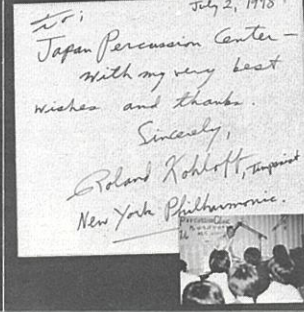 July 2, 1998
to:
Japan Percussion Center -
with my very best
wishes and thanks.
Sincerely,
Roland Kohloff, Timpanist
New York Philharmonic.